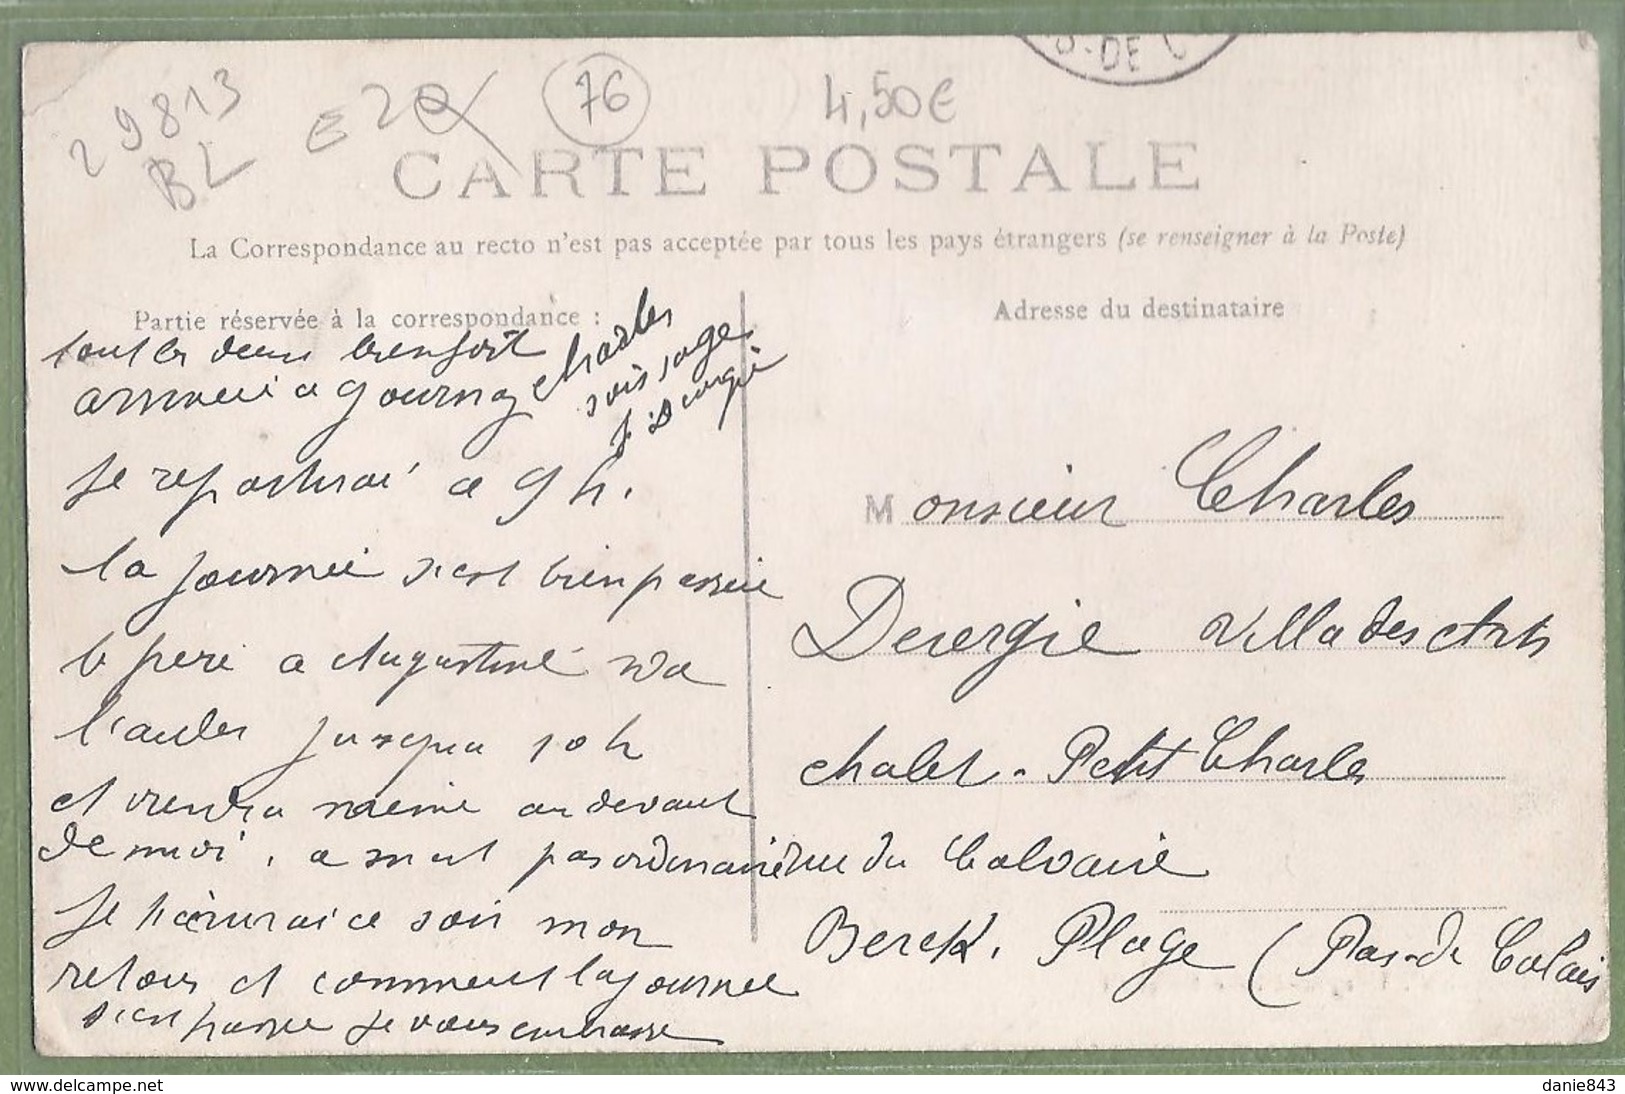 29813
BL
E 20
76
4,50€
S. DE C
CARTE POSTALE
La Correspondance au recto n'est pas acceptée par tous les pays étrangers (se renseigner à la Poste)
Partie réservée à la correspondance :
tout les deux
arrivée a Gournay
Charles
sois sage
Je repartirai a 9 h.
la journée s'est bien passée
le pere a Augustine
jusqua 10 h
et viendra meme au devant
de moi, pas ordinaire
Je ce soir mon
retour et comment la journee
s'est passee je vous embrasse
Adresse du destinataire
Monsieur Charles
Devergie Villa des Arts
chalet - Petit Charles
rue du Calvaire
Berck. Plage (Pas-de Calais
delcampe.net
danie843